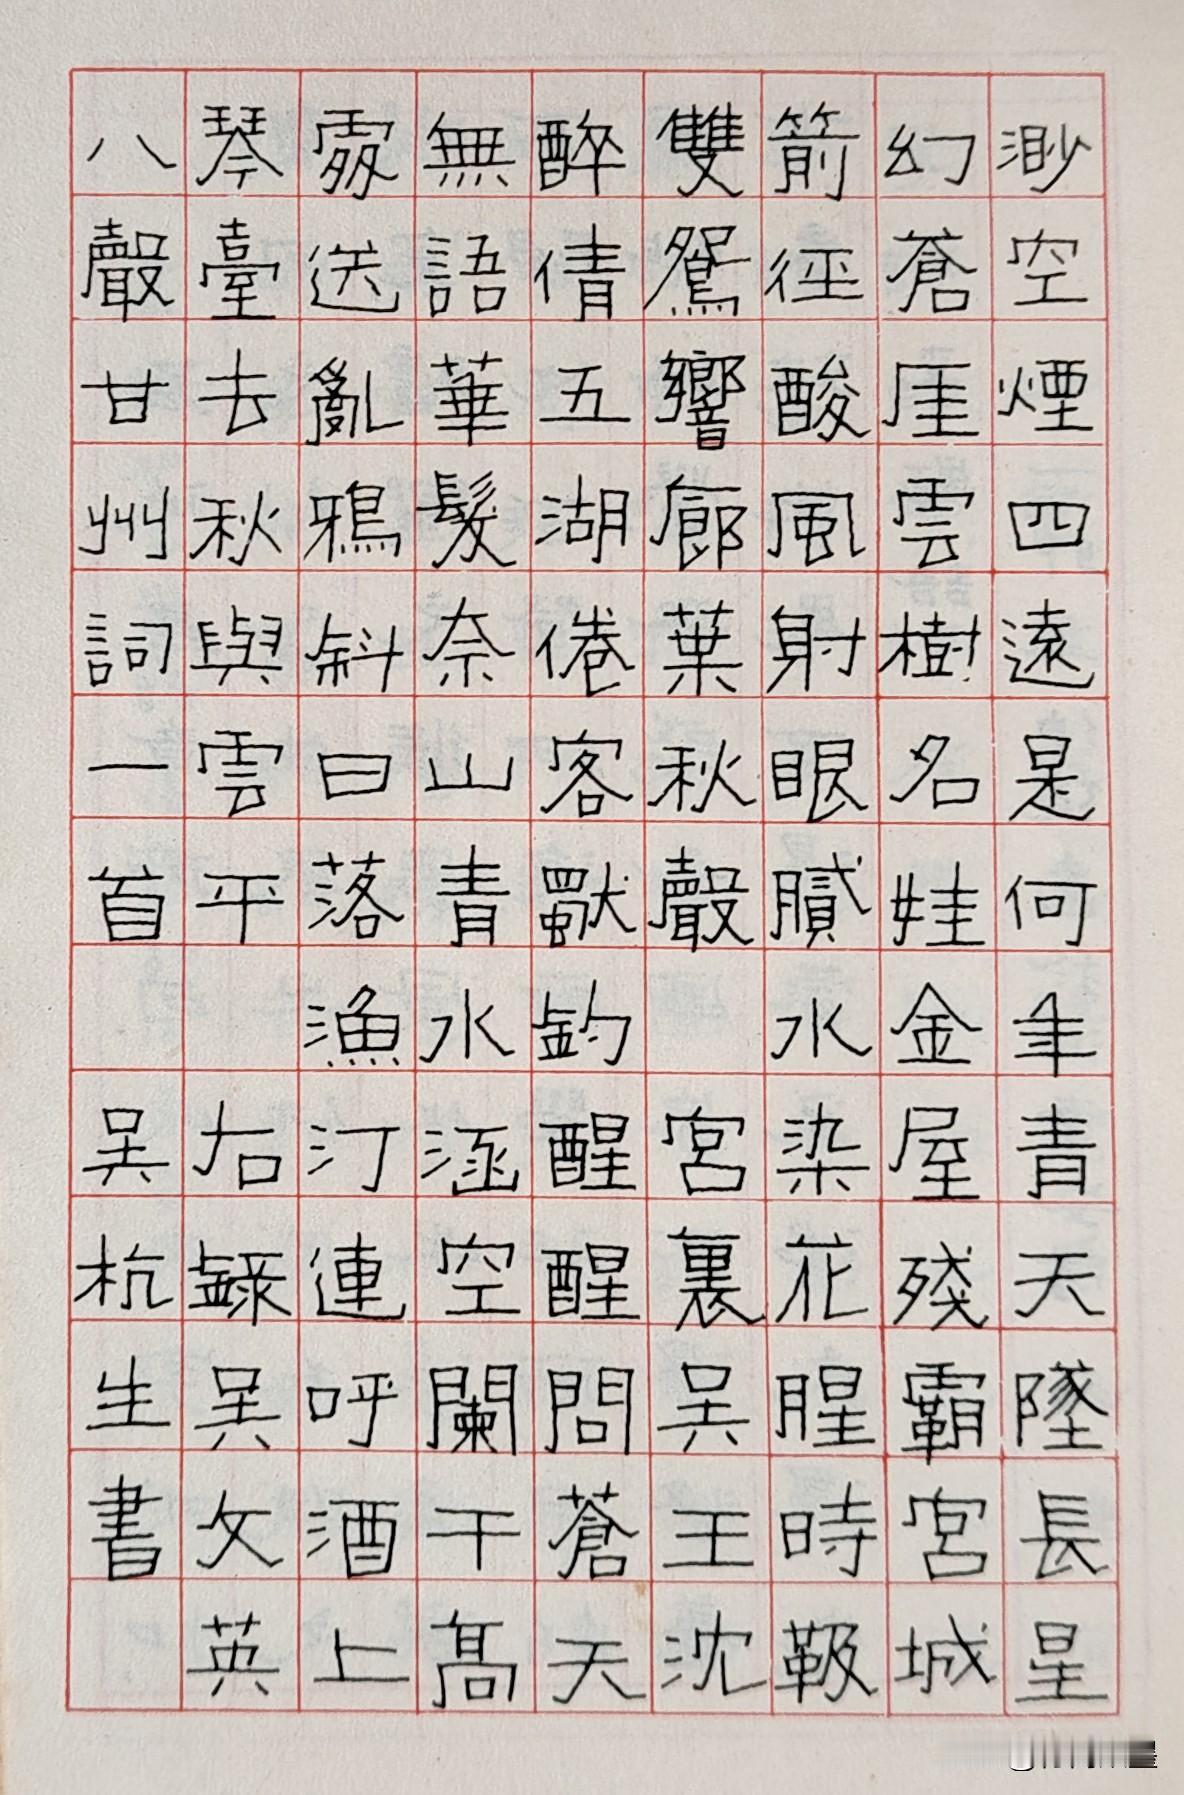 渺空煙四遠是何年青天墜長星
幻蒼厓雲樹名娃金屋殘霸宮城
箭徑酸風射眼膩水染花腥時靸
雙鴛響廊葉秋聲 宮裏吳王沈
醉倩五湖倦客獨釣醒醒問蒼天
無語華髮奈山青水涵空闌干髙
處送亂鴉斜日落漁汀連呼酒上
琴臺去秋與雲平 右錄吳文英
八聲甘州詞一首 吳杭生書